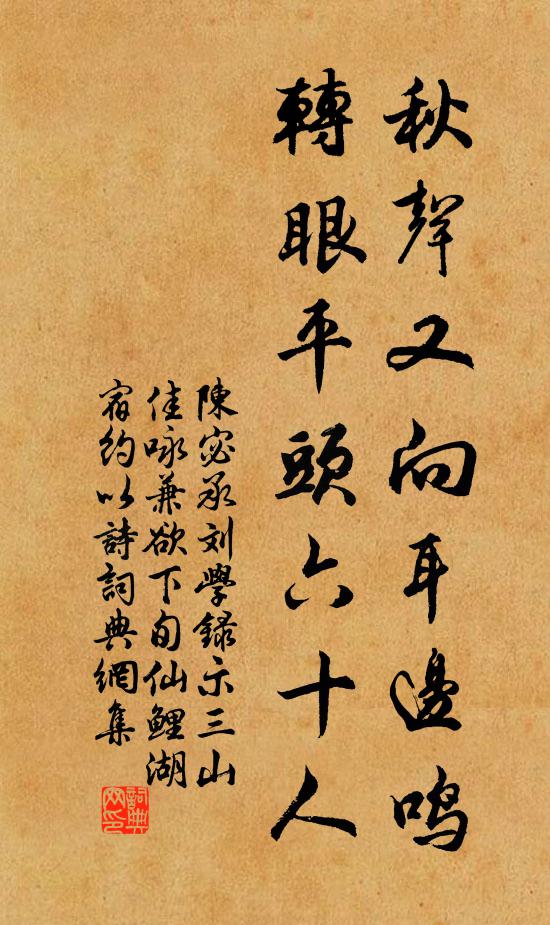 秋聲又向耳邊鸣
轉眼平頭六十人
陳宓承刘學録示三山
佳咏兼欲下旬仙鲤湖
宿约以詩詞典網集
詞典網印